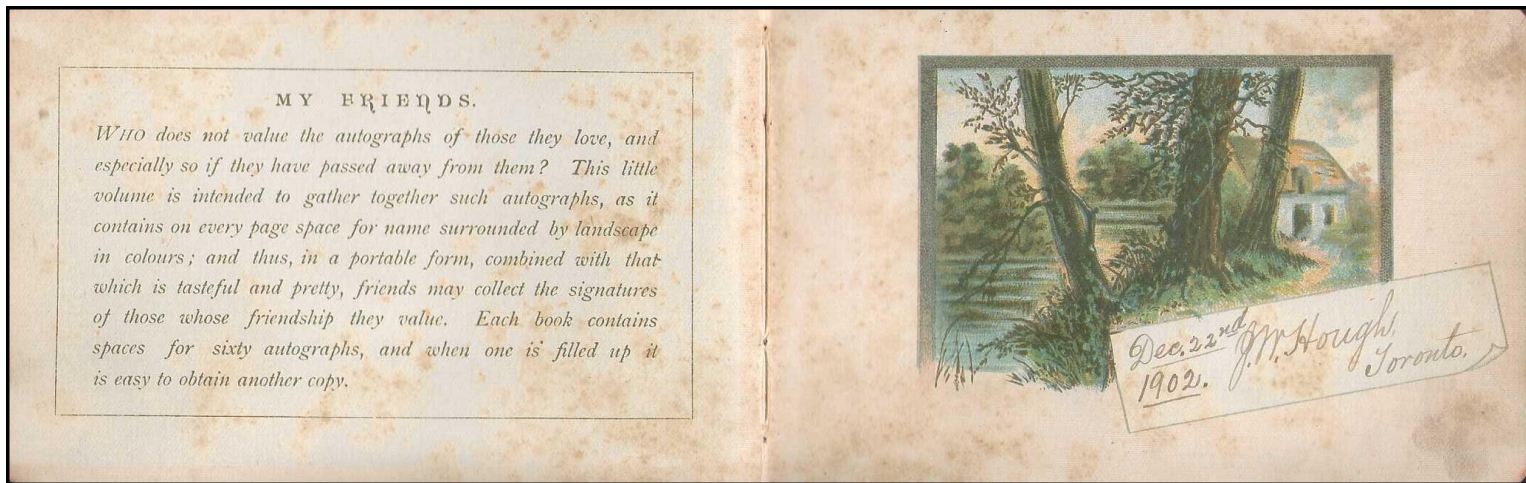 MY FRIENDS.
WHO does not value the autographs of those they love, and
especially so if they have passed away from them? This little
volume is intended to gather together such autographs, as it
contains on every page space for name surrounded by landscape
in colours; and thus, in a portable form, combined with that
which is tasteful and pretty, friends may collect the signatures
of those whose friendship they value. Each book contains
spaces for sixty autographs, and when one is filled up it
is easy to obtain another copy.
Dec. 22nd J.W. Hough,
1902. Toronto.